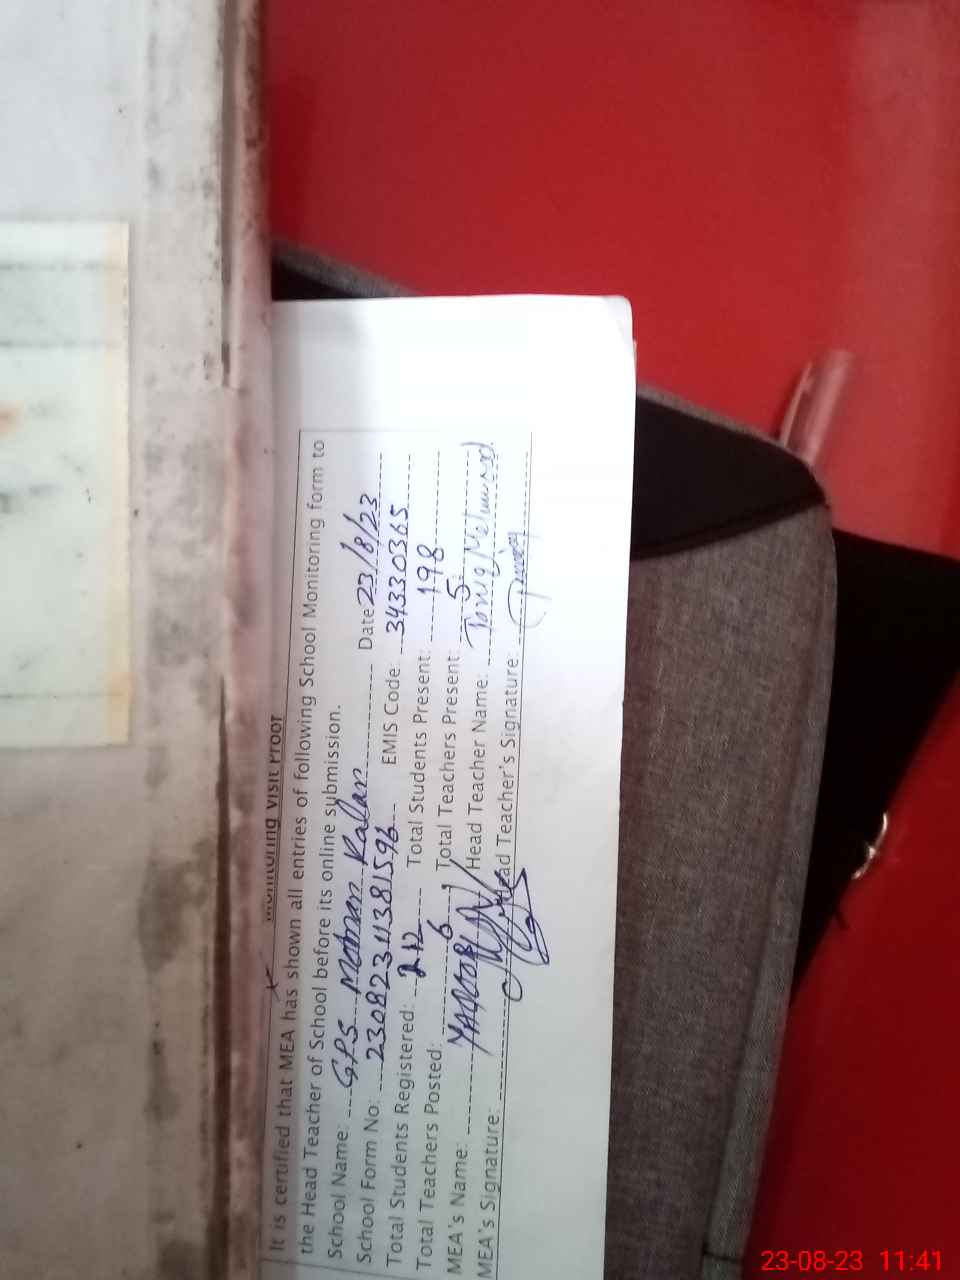 Monitoring Visit Proof
It is certified that MEA has shown all entries of following School Monitoring form to
the Head Teacher of School before its online submission.
School Name: GPS Motman Kalan Date 23/8/23
School Form No: 23082311381596 EMIS Code: 34330365
Total Students Registered: 212 Total Students Present: 198
Total Teachers Posted: 6 Total Teachers Present: 5
MEA's Name: YAQOOB Head Teacher Name: Tariq Mehmood
MEA's Signature: Head Teacher's Signature:
23-08-23 11:41